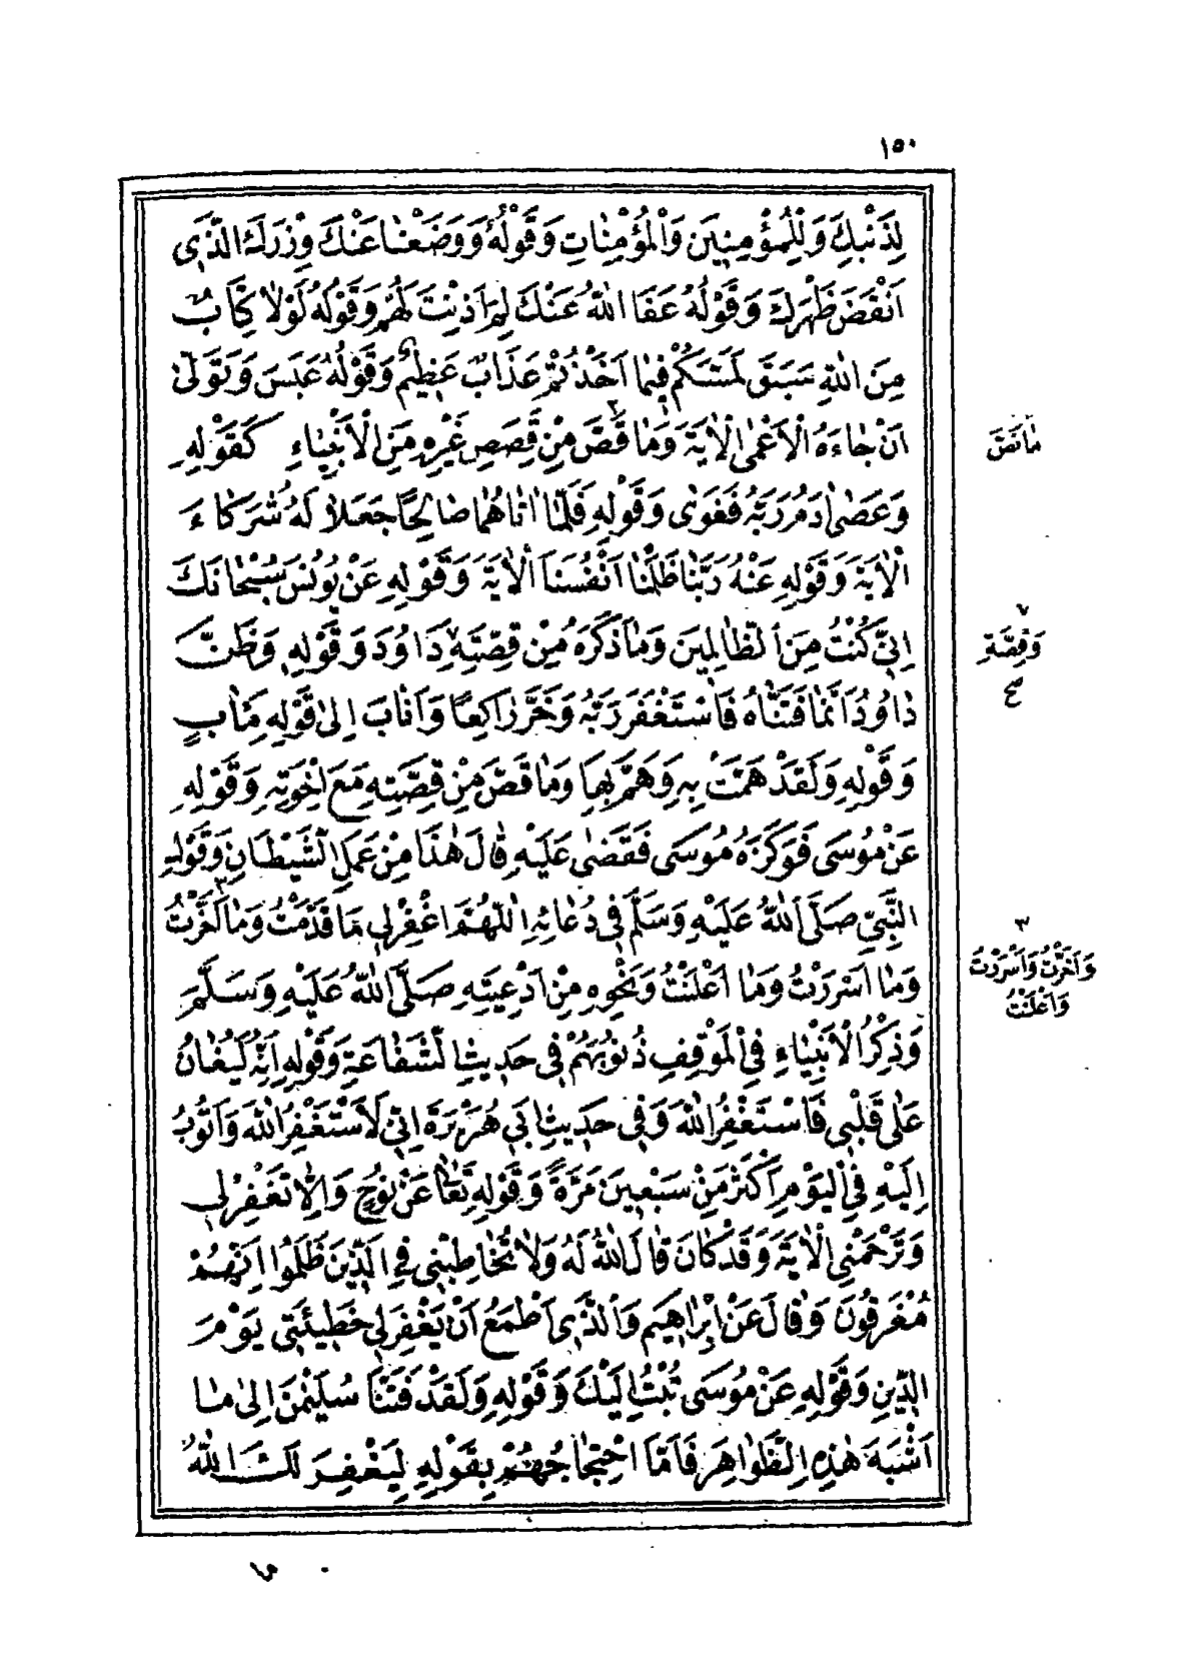 ١٥٠
لِذَنْبِكَ وَلِلْمُؤْمِنِينَ وَالْمُؤْمِنَاتِ وَقَوْلُهُ وَوَضَعْنَا عَنْكَ وِزْرَكَ الَّذِى
اَنْقَضَ ظَهْرَكَ وَقَوْلُهُ عَفَا اللّٰهُ عَنْكَ لِمَ اَذِنْتَ لَهُمْ وَقَوْلُهُ لَوْلَا كِتَابٌ
مِنَ اللّٰهِ سَبَقَ لَمَسَّكُمْ فِيمَا اَخَذْتُمْ عَذَابٌ عَظِيمٌ وَقَوْلُهُ عَبَسَ وَتَوَلّٰى
اَنْ جَاءَهُ الْاَعْمٰى الْاٰيَةَ وَمَا قَصَّ مِنْ قِصَصِ غَيْرِهِ مِنَ الْاَنْبِيَاءِ كَقَوْلِهِ
مَا نَصَّ
وَعَصٰى اٰدَمُ رَبَّهُ فَغَوٰى وَقَوْلِهِ فَلَمَّا اٰتَاهُمَا صَالِحًا جَعَلَا لَهُ شُرَكَاءَ
الْاٰيَةَ وَقَوْلِهِ عَنْهُ رَبَّنَا ظَلَمْنَا اَنْفُسَنَا الْاٰيَةَ وَقَوْلِهِ عَنْ يُونُسَ سُبْحَانَكَ
اِنِّى كُنْتُ مِنَ الظَّالِمِينَ وَمَا ذَكَرَهُ مِنْ قِصَّتِهِ ٧ دَاوُدَ وَقَوْلِهِ وَظَنَّ
٧
وَقِصَّةِ
صح
دَاوُدُ اَنَّمَا فَتَنَّاهُ فَاسْتَغْفَرَ رَبَّهُ وَخَرَّ رَاكِعًا وَاَنَابَ اِلٰى قَوْلِهِ مَاٰبٍ
وَقَوْلِهِ وَلَقَدْ هَمَّتْ بِهِ وَهَمَّ بِهَا وَمَا قَصَّ مِنْ قِصَّتِهِ مَعَ اِخْوَتِهِ وَقَوْلِهِ
عَنْ مُوسَى فَوَكَزَهُ مُوسَى فَقَضٰى عَلَيْهِ قَالَ هٰذَا مِنْ عَمَلِ الشَّيْطَانِ وَقَوْلِهِ
النَّبِىِّ صَلَّى اللّٰهُ عَلَيْهِ وَسَلَّمَ فِى دُعَائِهِ اَللّٰهُمَّ اغْفِرْ لِى مَا قَدَّمْتُ وَمَا اَخَّرْتُ ٣
٣
وَاَخَّرْتُ وَاَسْرَرْتُ
وَاَعْلَنْتُ
وَمَا اَسْرَرْتُ وَمَا اَعْلَنْتُ وَنَحْوِهِ مِنْ اَدْعِيَتِهِ صَلَّى اللّٰهُ عَلَيْهِ وَسَلَّمَ
وَذِكْرُ الْاَنْبِيَاءِ فِى الْمَوْقِفِ ذُنُوبَهُمْ فِى حَدِيثِ الشَّفَاعَةِ وَقَوْلِهِ اِنَّهُ لَيُغَانُ
عَلٰى قَلْبِى فَاَسْتَغْفِرُ اللّٰهَ وَفِى حَدِيثِ اَبِى هُرَيْرَةَ اِنِّى لَاَسْتَغْفِرُ اللّٰهَ وَاَتُوبُ
اِلَيْهِ فِى الْيَوْمِ اَكْثَرَ مِنْ سَبْعِينَ مَرَّةً وَقَوْلِهِ تَعَالٰى عَنْ نُوحٍ وَاِلَّا تَغْفِرْ لِى
وَتَرْحَمْنِى الْاٰيَةَ وَقَدْ كَانَ قَالَ اللّٰهُ لَهُ وَلَا تُخَاطِبْنِى فِى الَّذِينَ ظَلَمُوا اِنَّهُمْ
مُغْرَقُونَ وَقَالَ عَنْ اِبْرٰاهِيمَ وَالَّذِى اَطْمَعُ اَنْ يَغْفِرَ لِى خَطِيئَتِى يَوْمَ
الدِّينِ وَقَوْلِهِ عَنْ مُوسَى تُبْتُ اِلَيْكَ وَقَوْلِهِ وَلَقَدْ فَتَنَّا سُلَيْمٰنَ اِلٰى مَا
اَشْبَهَ هٰذِهِ الظَّوَاهِرَ فَاَمَّا احْتِجَاجُهُمْ بِقَوْلِهِ لِيَغْفِرَ لَكَ اللّٰهُ